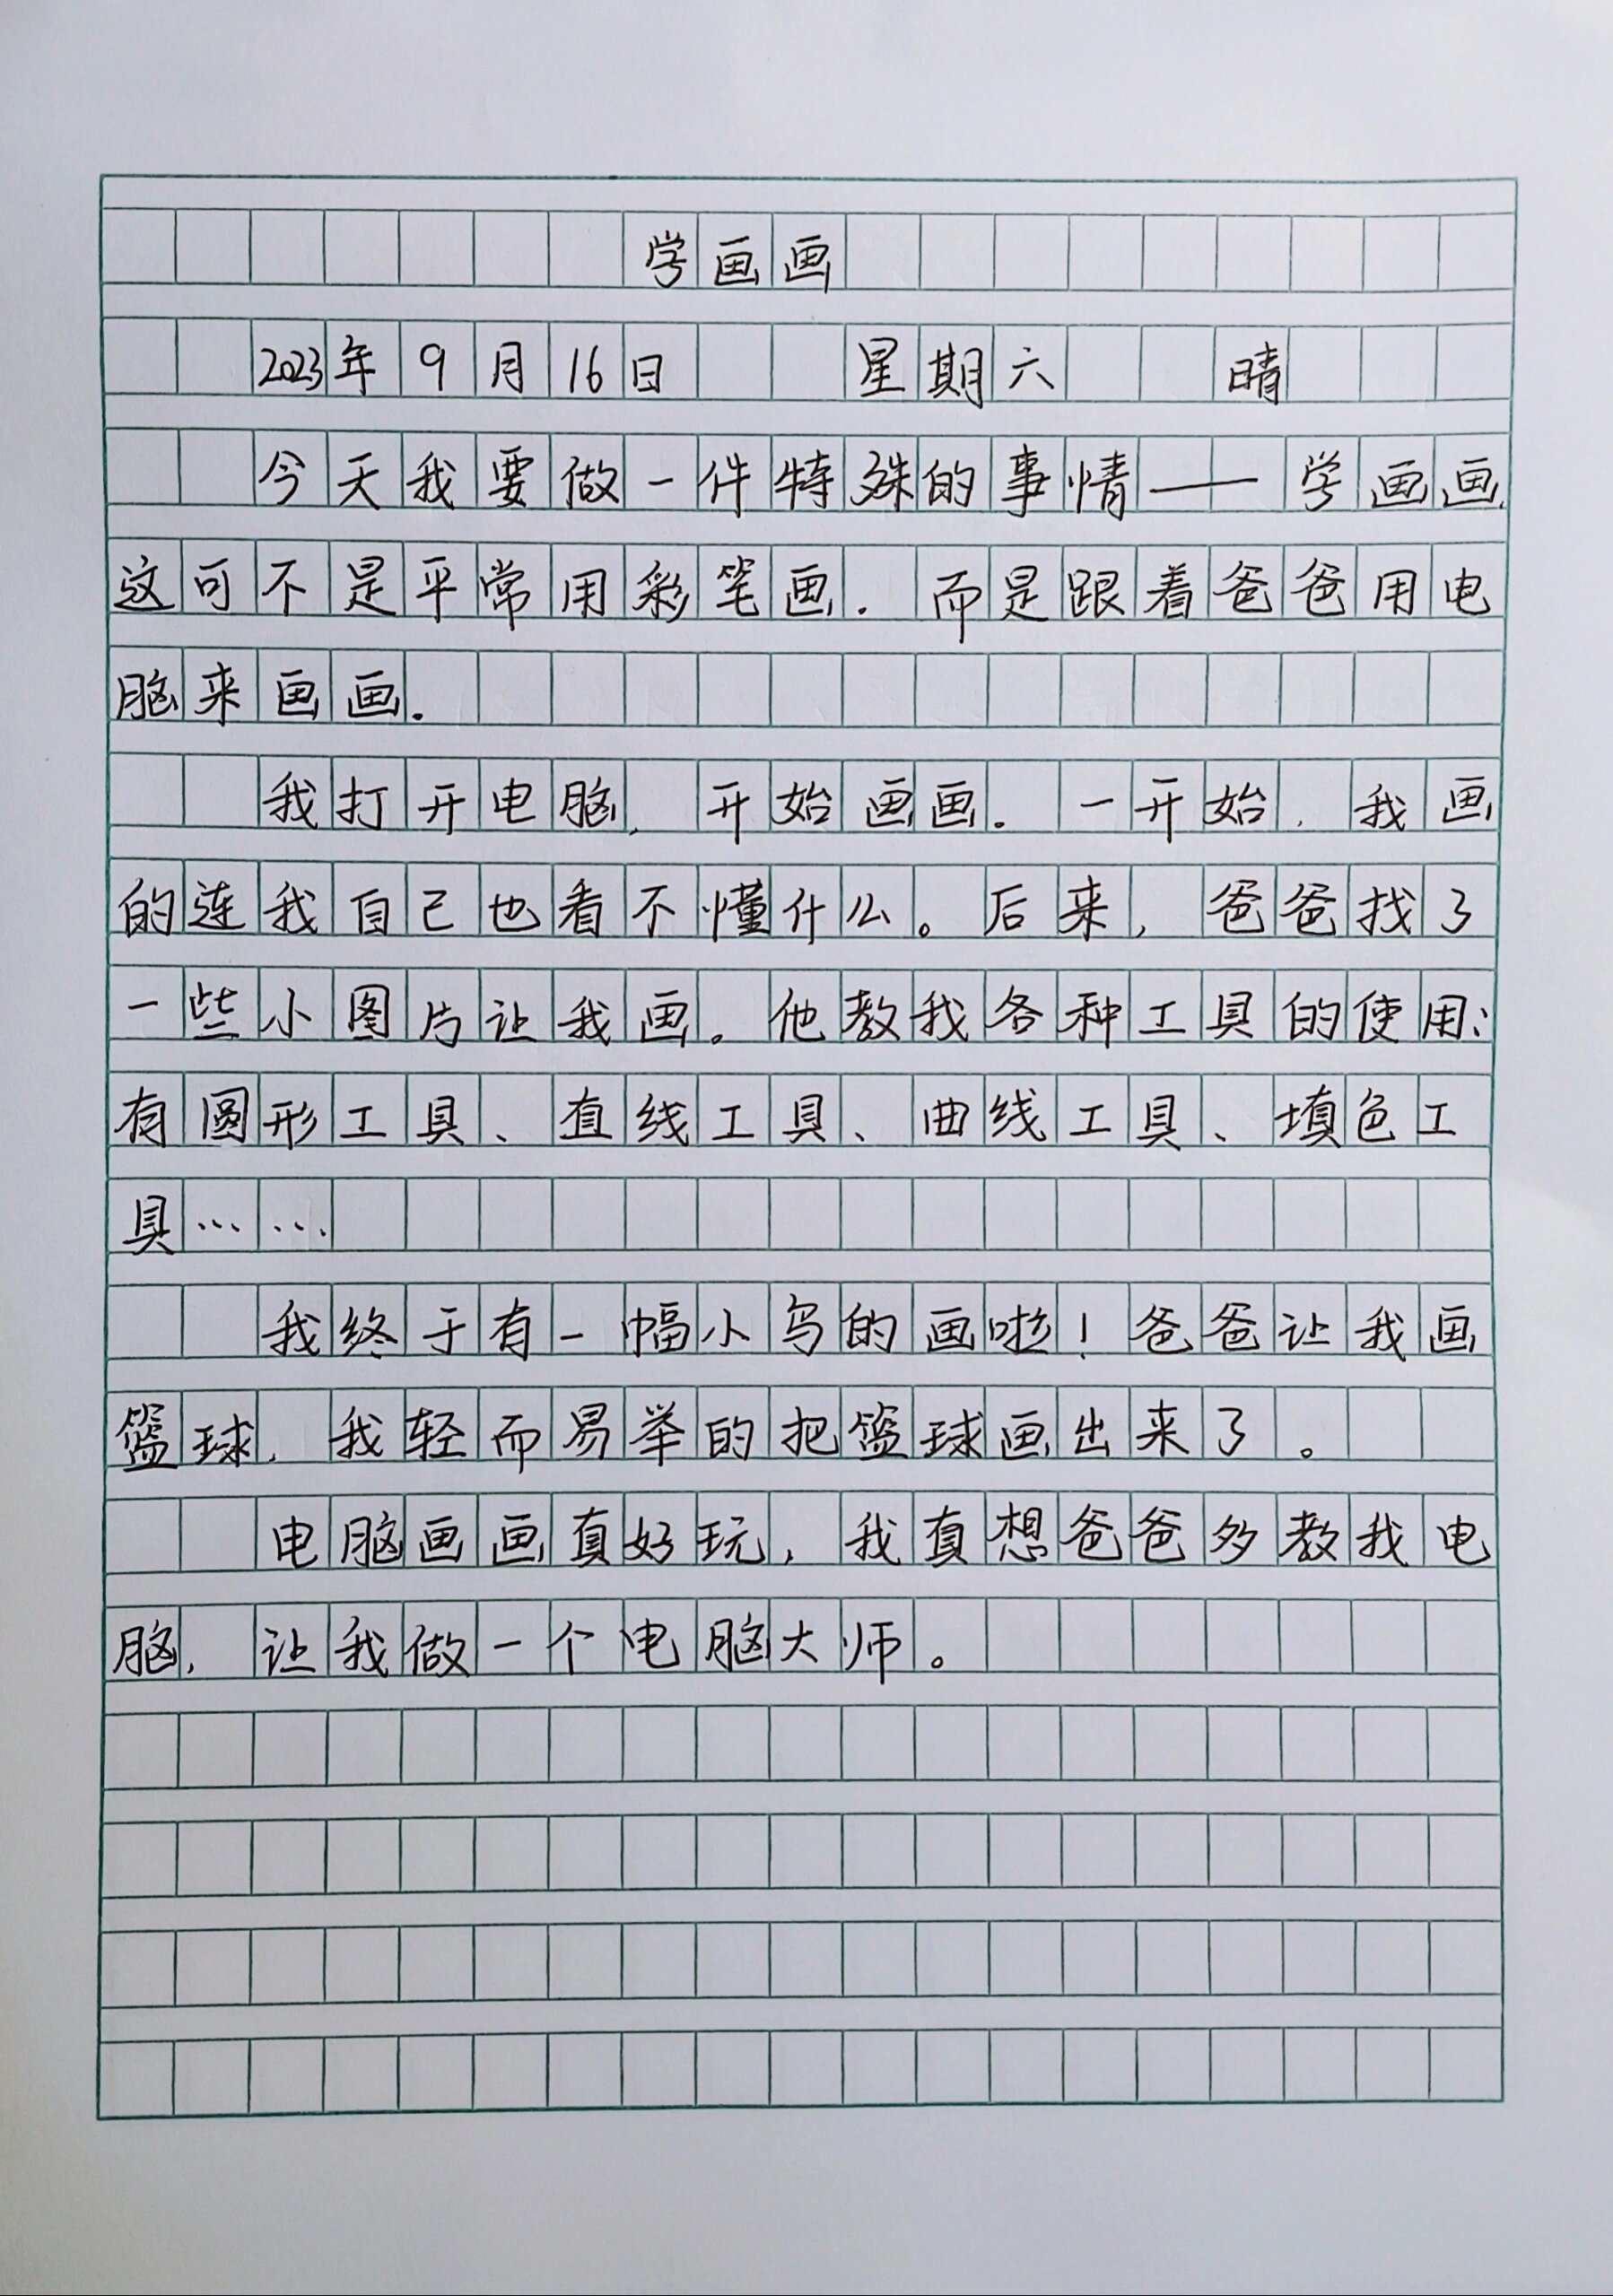 学画画
2023年9月16日 星期六 晴
今天我要做一件特殊的事情——学画画.
这可不是平常用彩笔画.而是跟着爸爸用电
脑来画画.
我打开电脑,开始画画.一开始,我画
的连我自己也看不懂什么。后来,爸爸找了
一些小图片让我画。他教我各种工具的使用:
有圆形工具、直线工具、曲线工具、填色工
具……
我终于有一幅小鸟的画啦!爸爸让我画
篮球,我轻而易举的把篮球画出来了。
电脑画画真好玩,我真想爸爸多教我电
脑,让我做一个电脑大师。